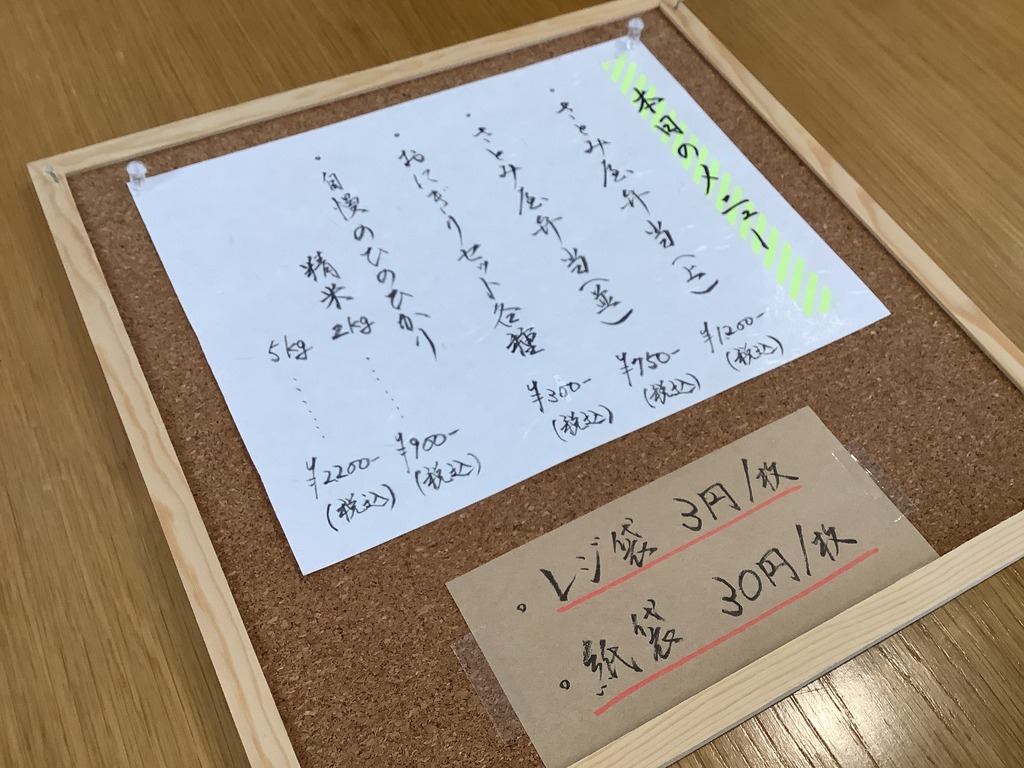 本日のメニュー
・さとみ屋弁当(上) ¥1200-(税込)
・さとみ屋弁当(並) ¥750-(税込)
・おにぎりセット各種 ¥300-(税込)
・自慢のひのひかり
精米 2kg ・・・・・ ¥900-(税込)
5kg ・・・・・ ¥2200-(税込)
・レジ袋 3円/枚
・紙袋 30円/枚